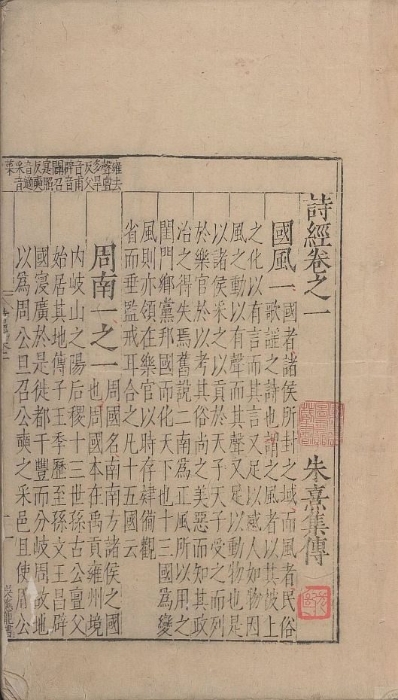 詩經卷之一
朱熹集傳
國風一 國者諸侯所封之域而風者民俗
歌謠之詩也謂之風者以其被上
之化以有言而其言又足以感人如物因
風之動以有聲而其聲又足以動物也是
以諸侯采之以貢於天子天子受之而列
於樂官於以考其俗尚之美惡而知其政
治之得失焉舊說二南為正風所以用之
閨門鄉黨邦國而化天下也十三國為變
風則亦領在樂官以時存肄備觀
省而垂監戒耳合之凡十五國云
周南一之一 周國名南南方諸侯之國
也周國本在禹貢雍州境
內岐山之陽后稷十三世孫古公亶父
始居其地傳子王季歷至孫文王昌辟
國寖廣於是徙都于豐而分岐周故地
以為周公旦召公奭之采邑且使周公
雍去